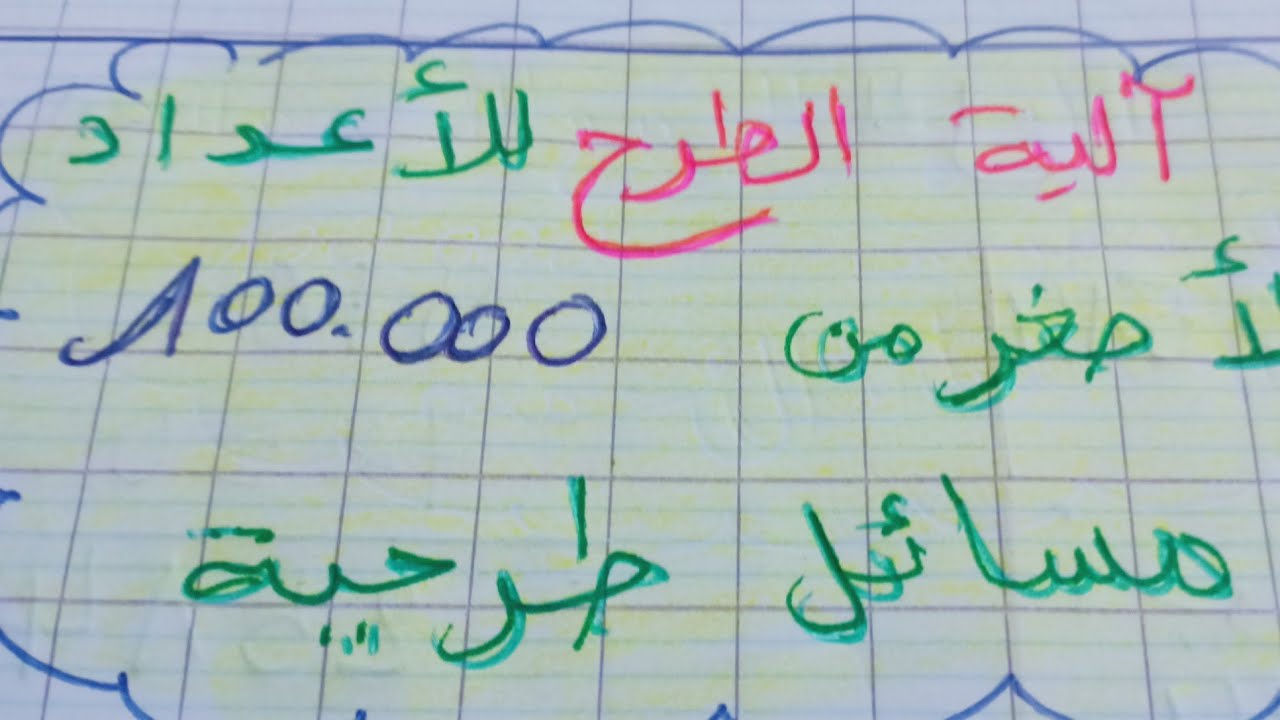 آلية الطرح للأعداد
الأصغر من 100.000
مسائل طرحية